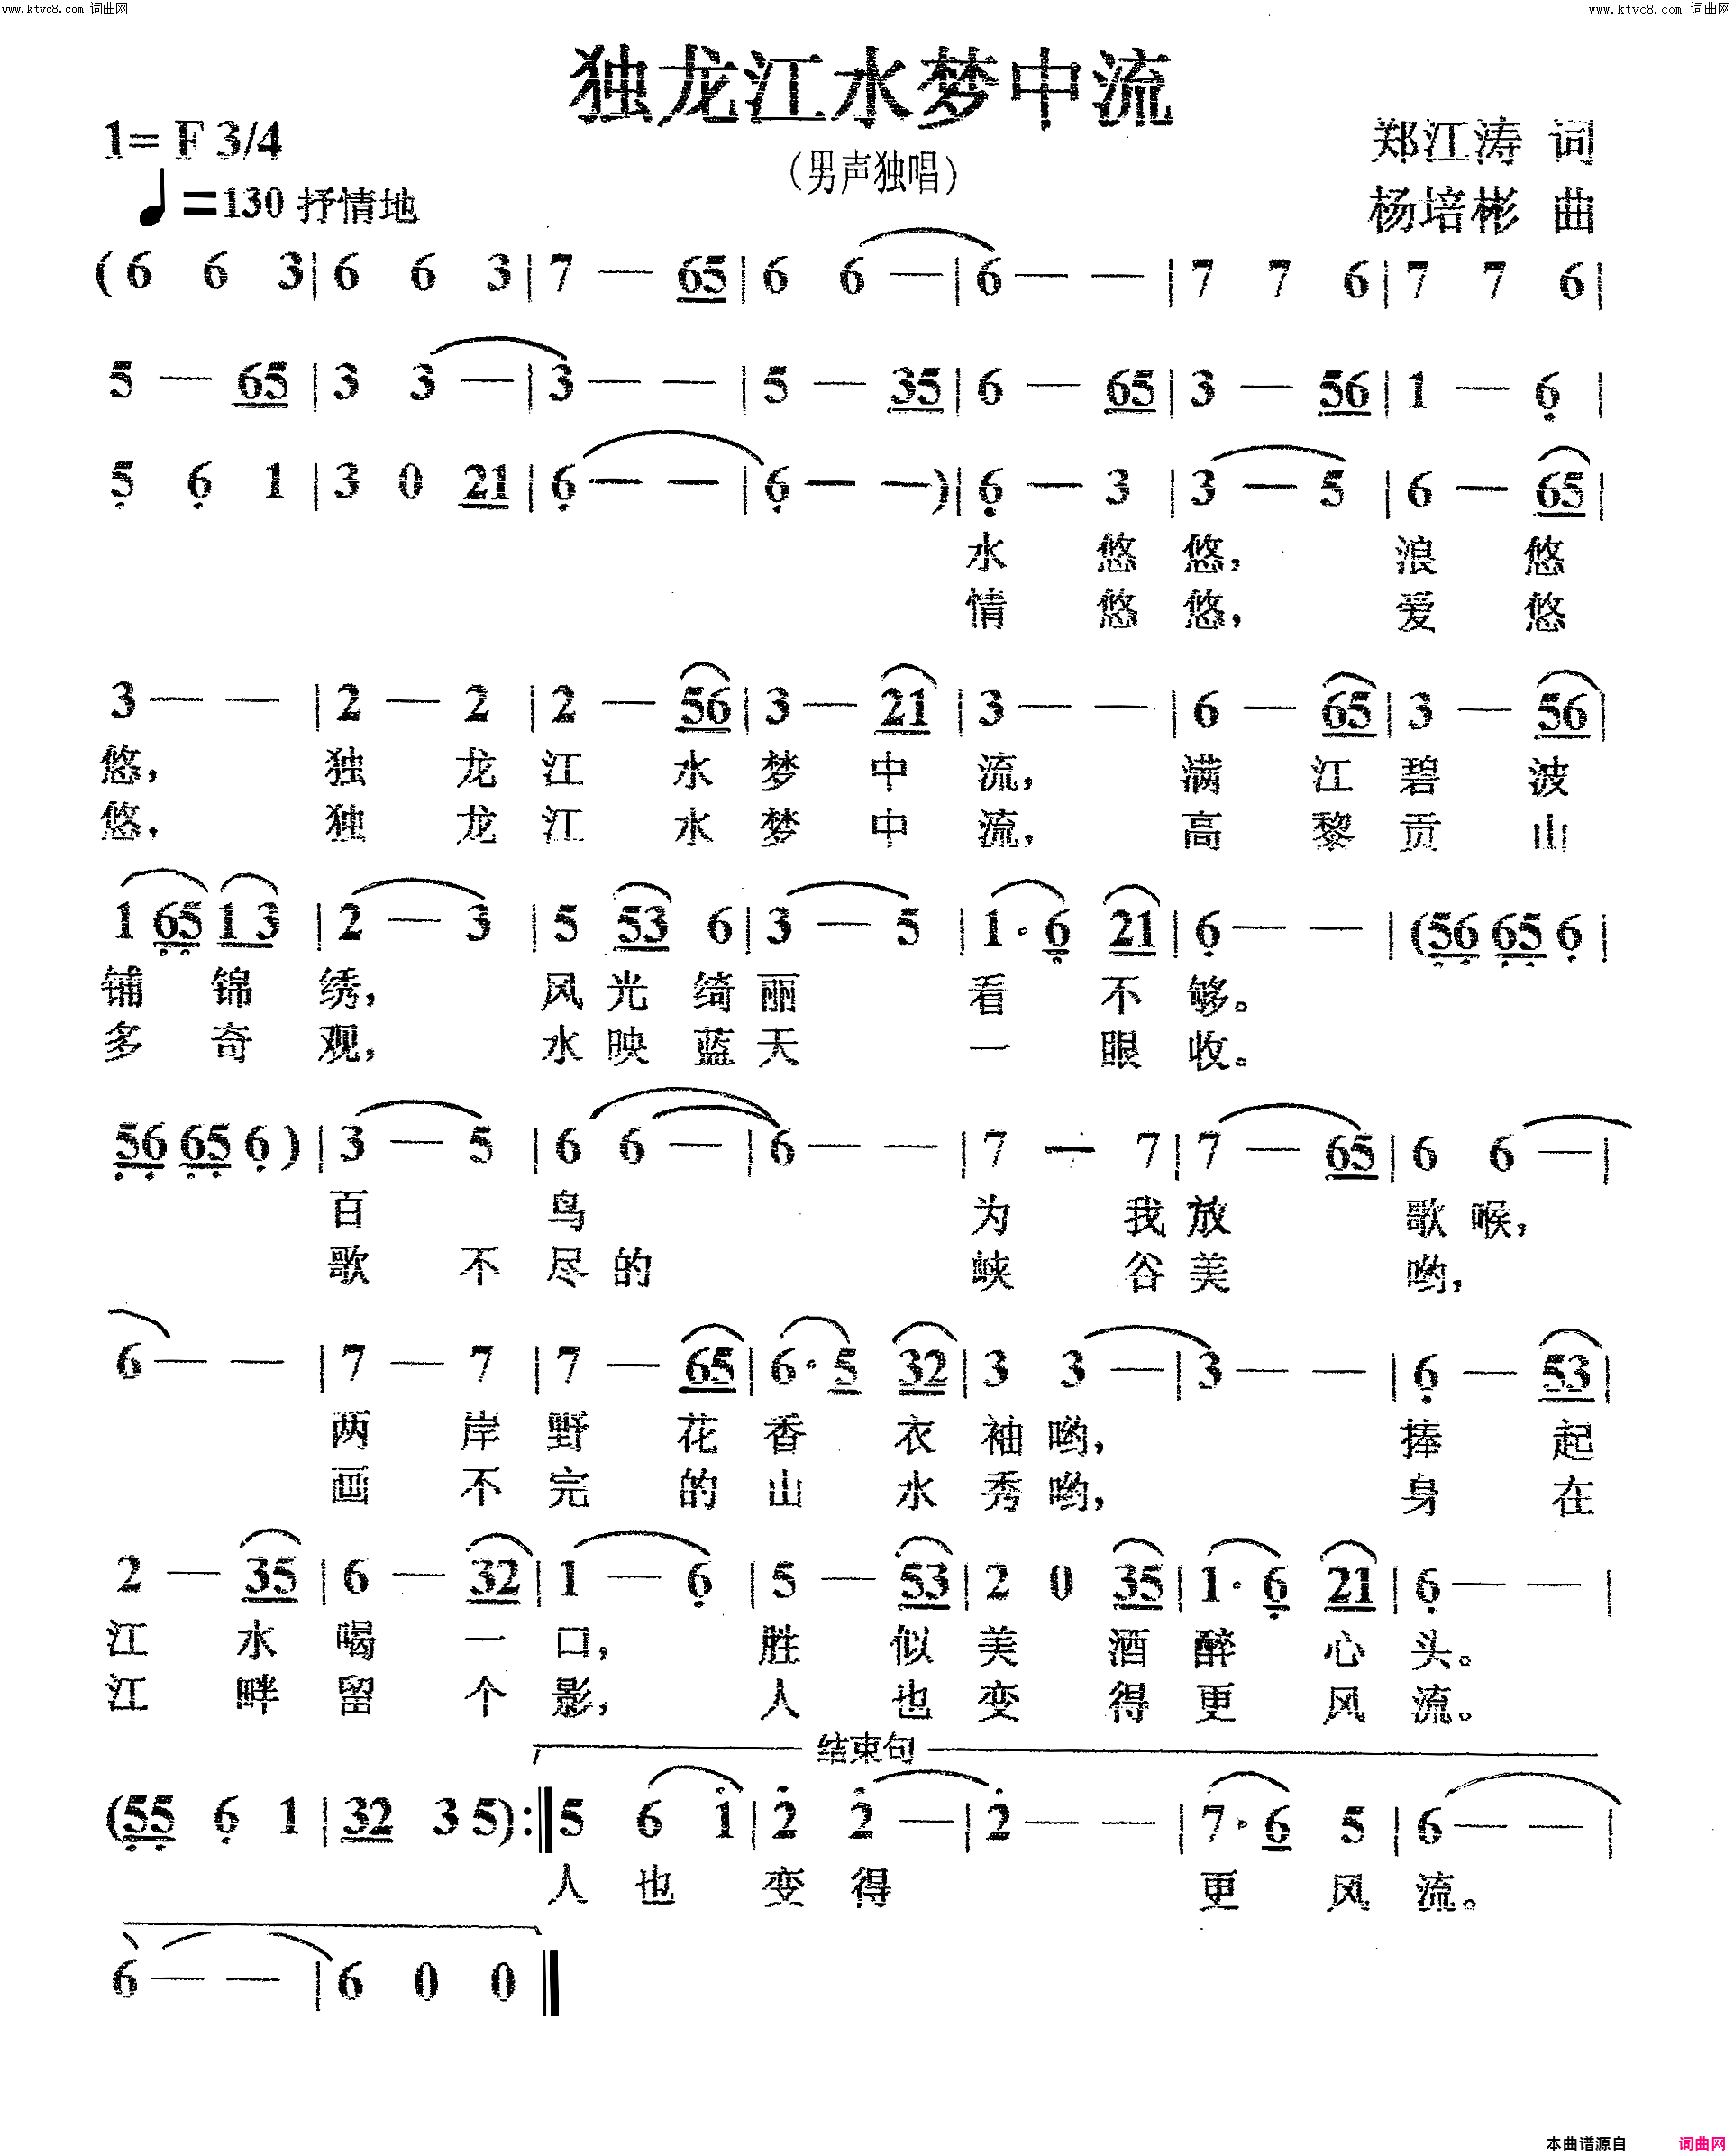 www.ktvc8.com 词曲网
www.ktvc8.com 词曲网
独龙江水梦中流
(男声独唱)
1= F 3/4
♩=130 抒情地
郑江涛 词
杨培彬 曲
( 6 6 3 | 6 6 3 | 7 — 65 | 6 6 — | 6 — — | 7 7 6 | 7 7 6 |
5 — 65 | 3 3 — | 3 — — | 5 — 35 | 6 — 65 | 3 — 56 | 1 — 6̣ |
5̣ 6̣ 1 | 3 0 21 | 6̣ — — | 6̣ — — ) | 6̣ — 3 | 3 — 5 | 6 — 65 |
水 悠 悠, 浪 悠
情 悠 悠, 爱 悠
3 — — | 2 — 2 | 2 — 56 | 3 — 21 | 3 — — | 6 — 65 | 3 — 56 |
悠, 独 龙 江 水 梦 中 流, 满 江 碧 波
悠, 独 龙 江 水 梦 中 流, 高 黎 贡 山
1 6̣5̣ 1 3 | 2 — 3 | 5 53 6 | 3 — 5 | 1· 6̣ 21 | 6̣ — — | (5̣6̣ 6̣5̣ 6̣ |
铺 锦 绣, 风 光 绮 丽 看 不 够。
多 奇 观, 水 映 蓝 天 一 眼 收。
5̣6̣ 6̣5̣ 6̣ ) | 3 — 5 | 6 6 — | 6 — — | 7 — 7 | 7 — 65 | 6 6 — |
百 鸟 为 我 放 歌 喉,
歌 不 尽 的 峡 谷 美 哟,
6 — — | 7 — 7 | 7 — 65 | 6· 5 32 | 3 3 — | 3 — — | 6̣ — 53 |
两 岸 野 花 香 衣 袖 哟, 捧 起
画 不 完 的 山 水 秀 哟, 身 在
2 — 35 | 6 — 32 | 1 — 6̣ | 5 — 53 | 2 0 35 | 1· 6̣ 21 | 6̣ — — |
江 水 喝 一 口, 胜 似 美 酒 醉 心 头。
江 畔 留 个 影, 人 也 变 得 更 风 流。
结束句
(5̣5̣ 6̣ 1 | 32 3 5) :‖ 5 6 1̇ | 2̇ 2̇ — | 2̇ — — | 7· 6 5 | 6 — — |
人 也 变 得 更 风 流。
6 — — | 6 0 0 ‖
本曲谱源自 词曲网